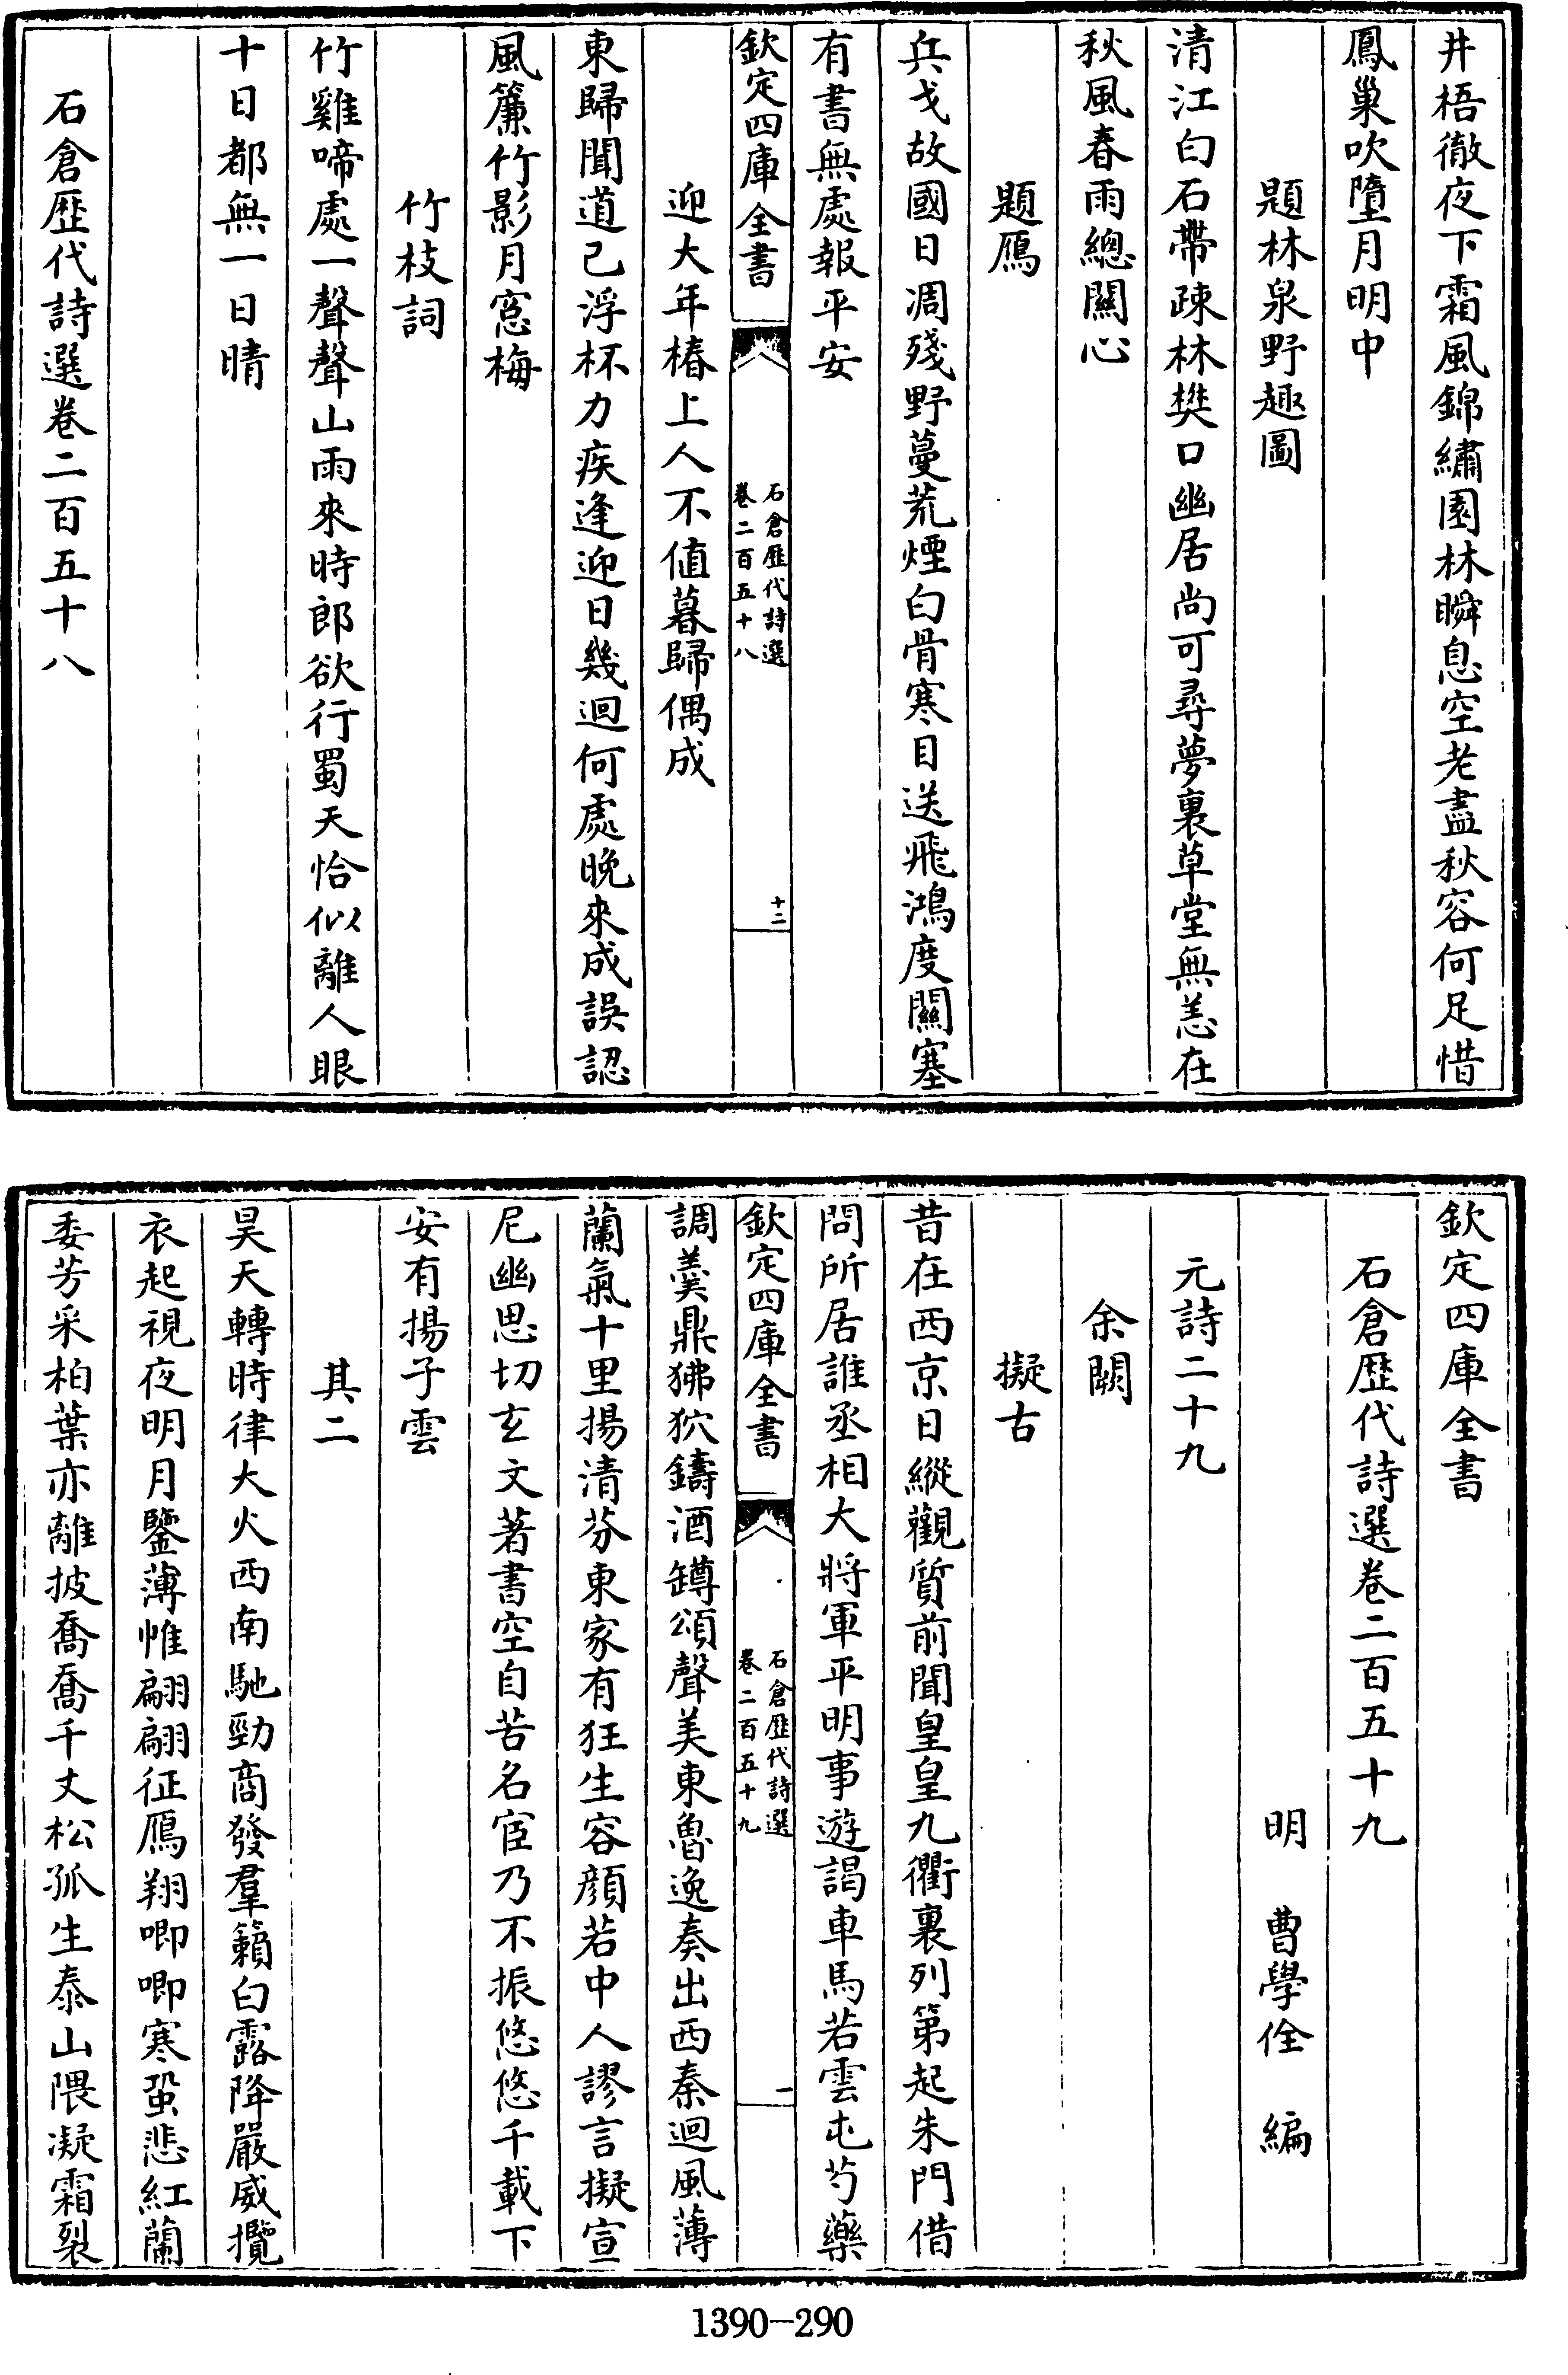 井梧徹夜下霜風錦繡園林瞬息空老盡秋容何足惜
鳳巢吹墮月明中
題林泉野趣圖
清江白石帶疎林樊口幽居尚可尋夢裏草堂無恙在
秋風春雨總關心
題鴈
兵戈故國日凋殘野蔓荒煙白骨寒目送飛鴻度關塞
有書無處報平安
欽定四庫全書
石倉歷代詩選
卷二百五十八
十二
迎大年椿上人不值暮歸偶成
東歸聞道已浮杯力疾逢迎日幾迴何處晚來成誤認
風簾竹影月窓梅
竹枝詞
竹雞啼處一聲聲山雨來時郎欲行蜀天恰似離人眼
十日都無一日晴
石倉歷代詩選卷二百五十八
欽定四庫全書
石倉歷代詩選卷二百五十九
明 曹學佺 編
元詩二十九
余闕
擬古
昔在西京日縱觀質前聞皇皇九衢裏列第起朱門借
問所居誰丞相大將軍平明事遊謁車馬若雲屯芍藥
欽定四庫全書
石倉歷代詩選
卷二百五十九
一
調羹鼎狒狖鑄酒罇頌聲美東魯逸奏出西秦迴風薄
蘭氣十里揚清芬東家有狂生容顏若中人謬言擬宣
尼幽思切玄文著書空自苦名宦乃不振悠悠千載下
安有揚子雲
其二
昊天轉時律大火西南馳勁商發羣籟白露降嚴威攬
衣起視夜明月鑒薄帷翩翩征鴈翔唧唧寒蛩悲紅蘭
委芳采柏葉亦離披喬喬千丈松孤生泰山隈凝霜裂
1390-290